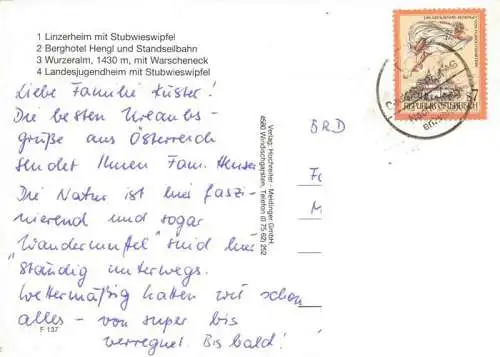 1 Linzerheim mit Stubwieswipfel
2 Berghotel Hengl und Standseilbahn
3 Wurzeralm, 1430 m, mit Warscheneck
4 Landesjugendheim mit Stubwieswipfel
Liebe Familie Küster!
Die besten Urlaubs-
grüße aus Österreich
sendet Ihnen Fam. Henser
Die Natur ist hier faszi-
nierend und sogar
"Wandermuffel" sind hier
ständig unterwegs.
Wettermäßig hatten wir schon
alles - von super bis
verregnet. Bis bald!
F 137
Verlag: Hochreiter - Meidlinger GmbH.
4580 Windischgarsten, Telefon (0 75 62) 252
BRD
REPUBLIK ÖSTERREICH